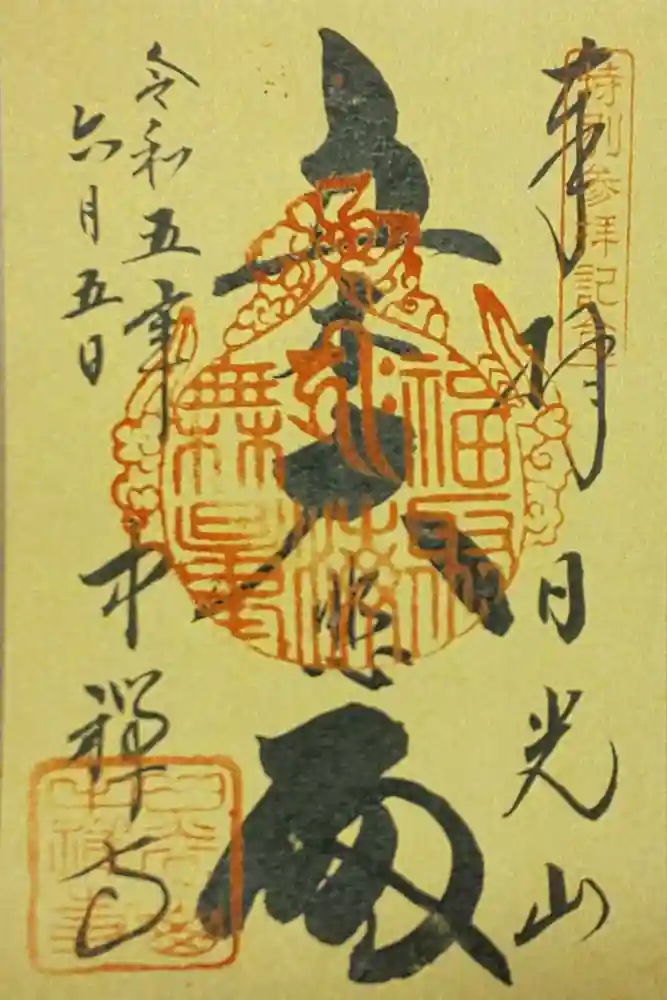 特別参拝記念
奉拝 日光山
立木大悲
福聚海無量
令和五年 中禅寺
六月五日
日光山
中禅寺